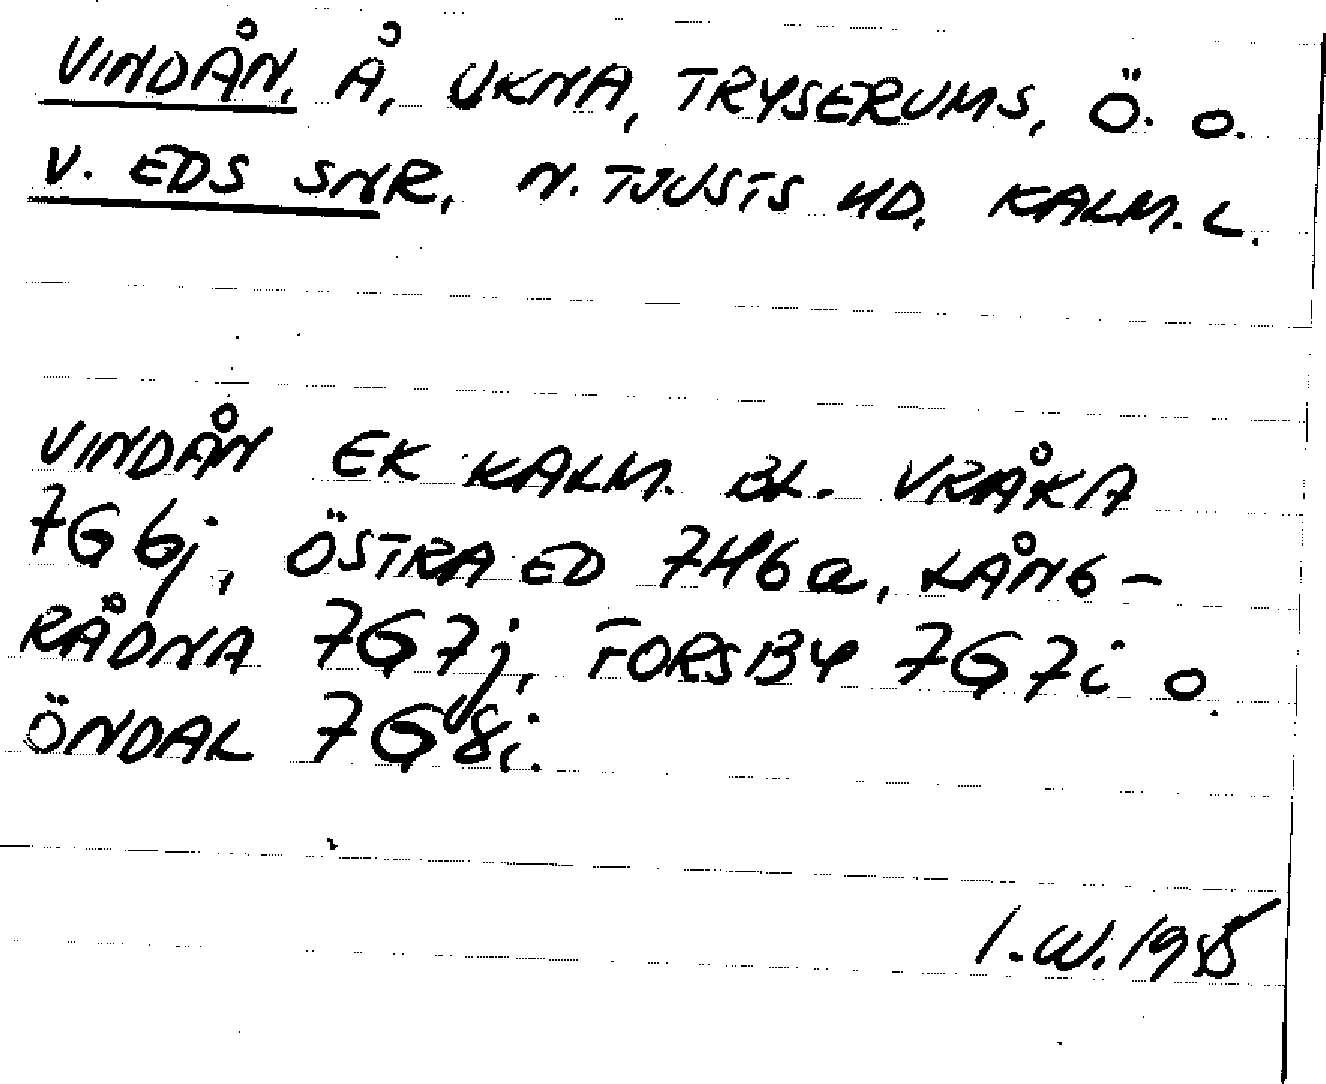 VINDÅN, Å, UKNA, TRYSERUMS, Ö. O.
V. EDS SNR, N. TJUSTS HD. KALM. L.
VINDÅN EK KALM. BL. VRÅKA
7G6j, ÖSTRA ED 7H6a, LÅNG-
RÅDNA 7G7j, FORSBY 7G7i O.
ÖNDAL 7G8i.
I.W.